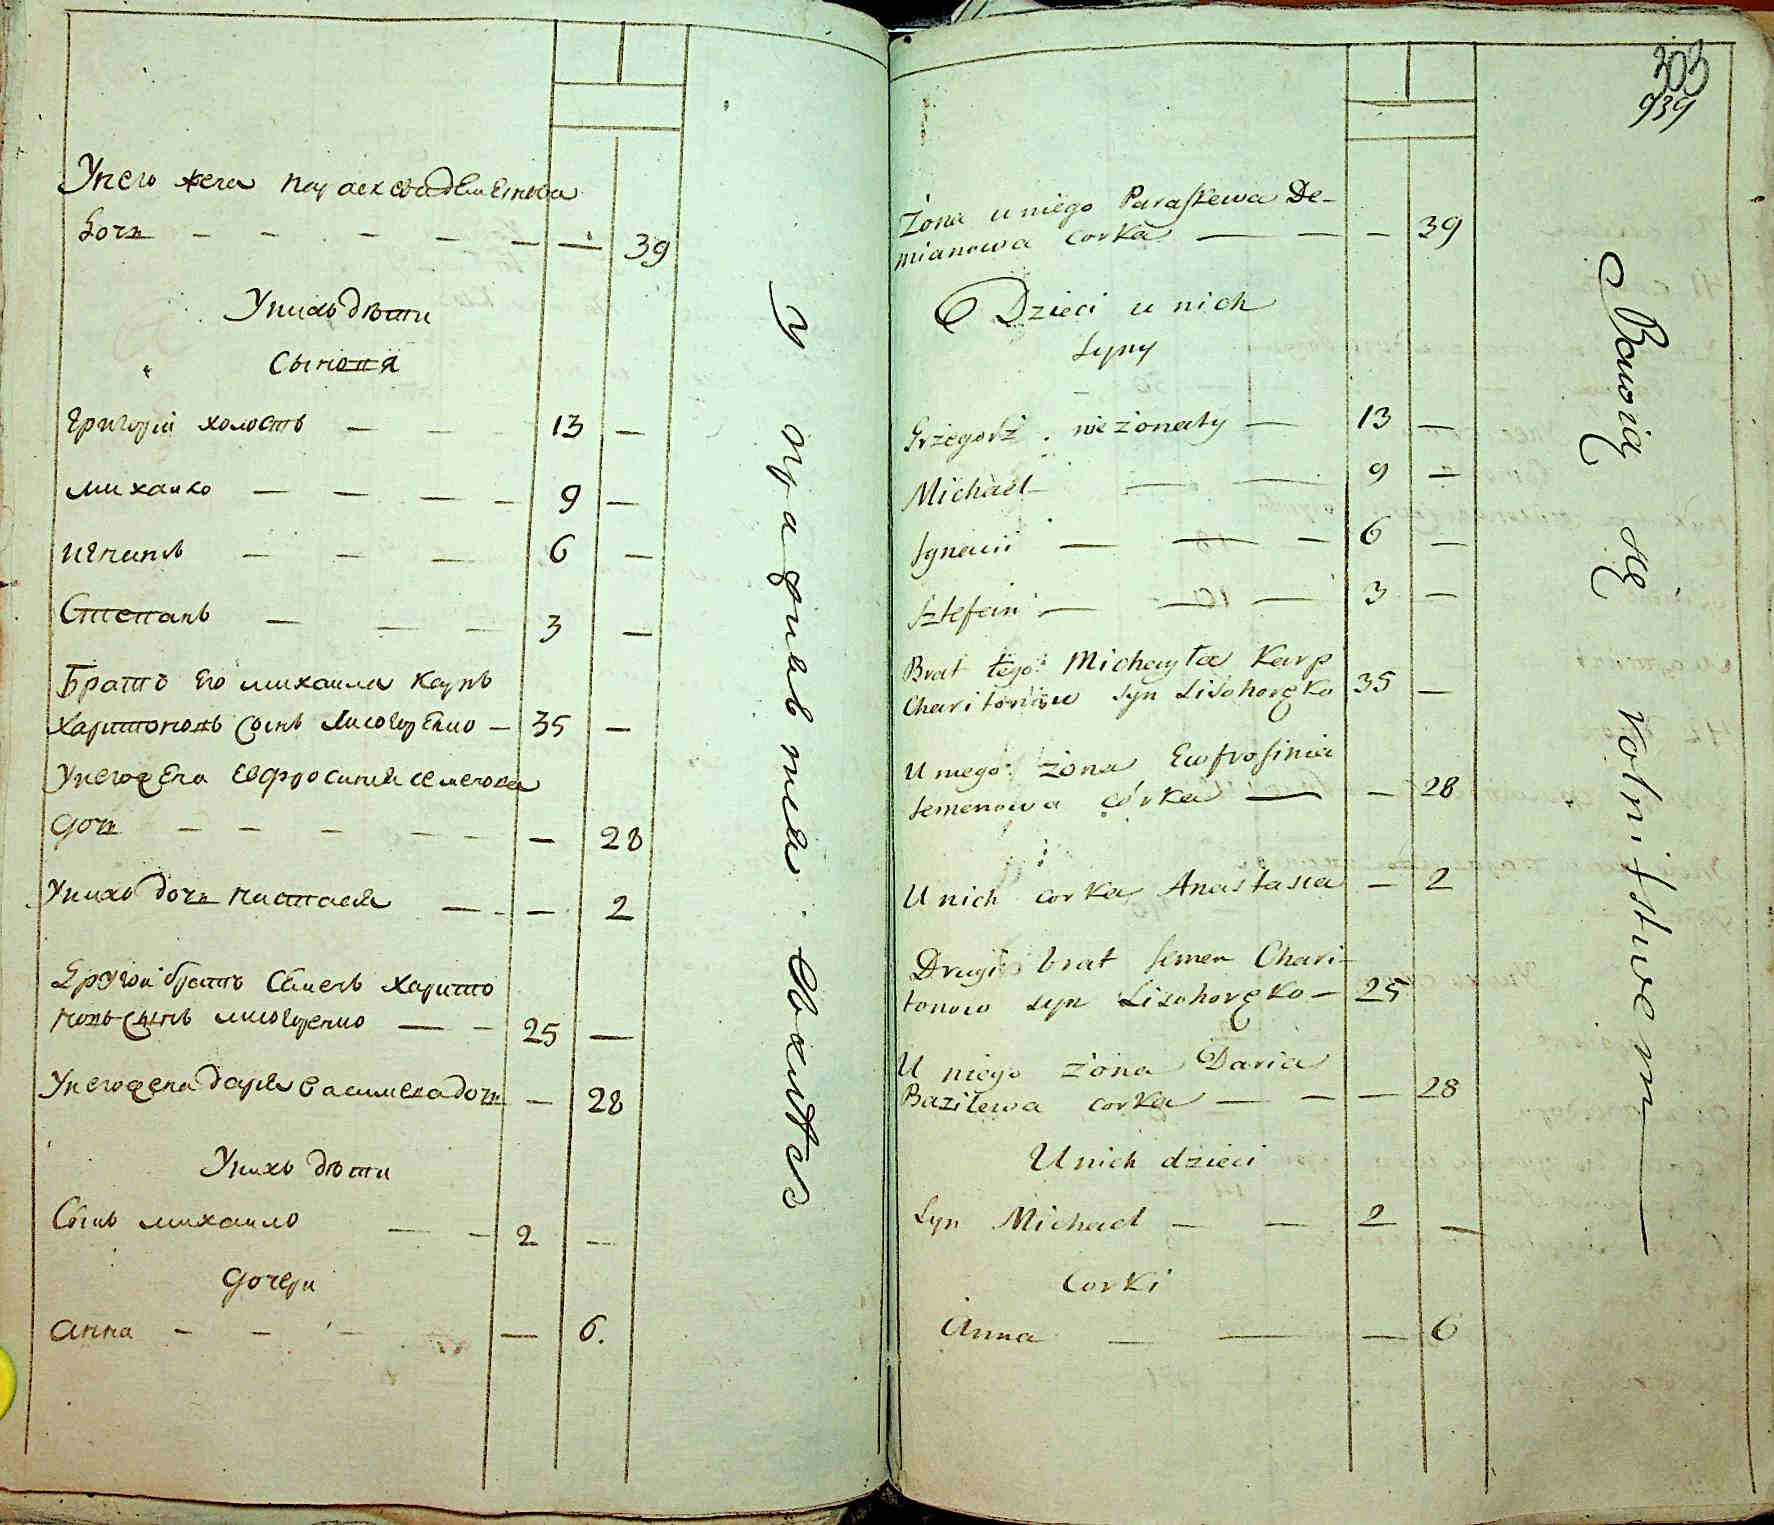 Унего жена Параскева деменкова
дочь — — — — — — 39
Унихъ дѣти
Сыновя
Григорій холостъ — — — 13 —
Михаило — — — — 9 —
Игнатъ — — — 6 —
Степанъ — — — 3 —
Братъ его михаила карпъ
Харитоновъ сынъ Лисогоренко — 35 —
Унего жена Евфросинія семенова
дочь — — — — — — 28
Унихъ дочь настасія — — 2
Другой братъ Семенъ Харито
новъ сынъ лисогоренко — — 25 —
Унего жена дарія василева дочь — 28
Унихъ дѣти
Сынъ михаило — — 2 —
дочери
анна — — — — 6.
303
939
Żona u niego Paraskewa De-
mianowa corka — — — 39
Dzieci u nich
Syny
Grzegorz nie żonaty — 13 —
Michael — — 9 —
Ignacii — — — 6 —
Sztefan — — — 3 —
Brat tego Michayła Karp
Charitonow Syn Lisohoręko 35 —
U niego żona Ewfrosinia
Semenowa córka — — 28
U nich corka Anastasia — 2
Drugi brat Semen Chari-
tonow syn Lisohoręko — 25
U niego żona Daria
Bazilewa corka — — — 28
U nich dzieci
Syn Michael — — 2 —
Corki
Anna — — — 6
Bawią się rolnistwem